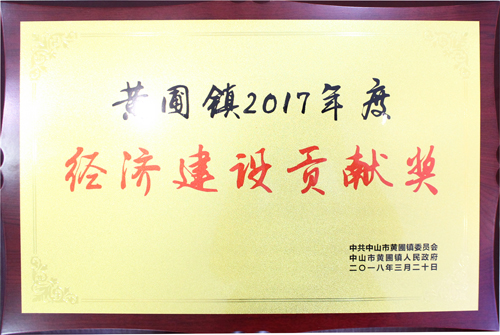 黄圃镇2017年度
经济建设贡献奖
中共中山市黄圃镇委员会
中山市黄圃镇人民政府
二〇一八年三月二十日